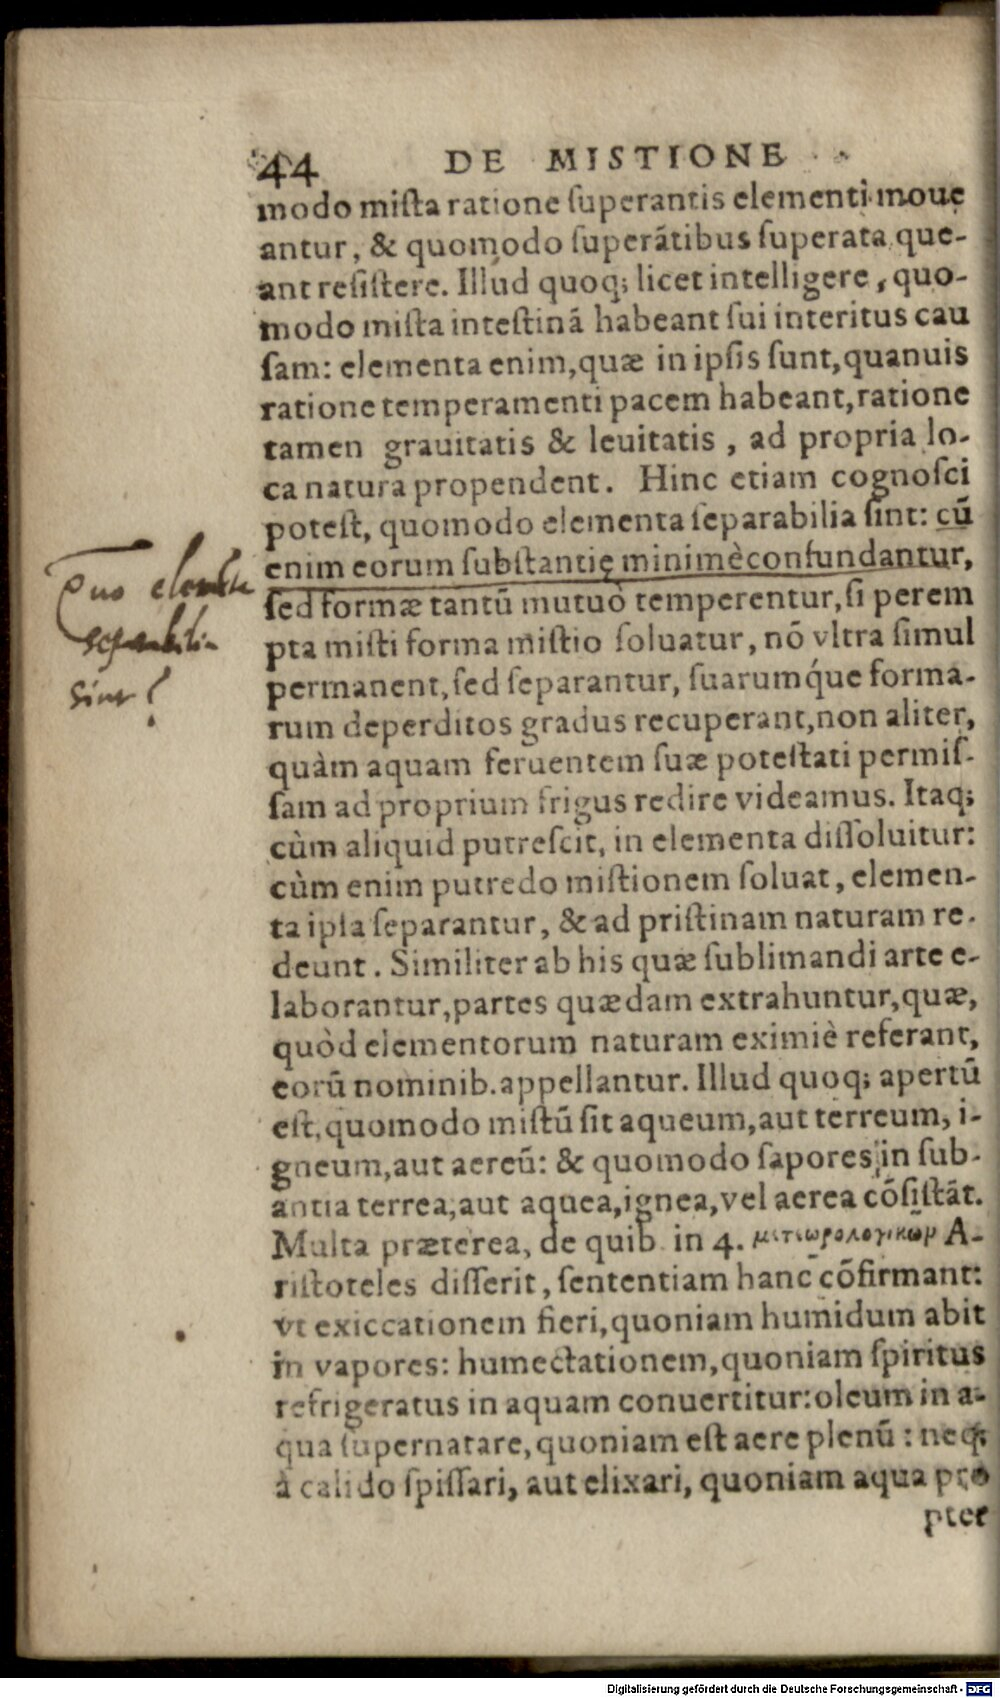 44 DE MISTIONE
modo mista ratione ſuperantis elementi moue
antur, & quomodo ſuperātibus ſuperata que-
ant reſiſtere. Illud quoq; licet intelligere, quo-
modo miſta inteſtinā habeant ſui interitus cau
ſam: elementa enim, quæ in ipſis ſunt, quanuis
ratione temperamenti pacem habeant, ratione
tamen grauitatis & leuitatis, ad propria lo-
ca natura propendent. Hinc etiam cognoſci
poteſt, quomodo elementa ſeparabilia ſint: cū
enim eorum ſubſtantię minimè confundantur,
ſed formæ tantū mutuò temperentur, ſi perem
pta miſti forma miſtio ſoluatur, nō vltra ſimul
permanent, ſed ſeparantur, ſuarumq́ue forma-
rum deperditos gradus recuperant, non aliter,
quàm aquam feruentem ſuæ poteſtati permiſ-
ſam ad proprium frigus redire videamus. Itaq;
cùm aliquid putreſcit, in elementa diſſoluitur:
cùm enim putredo miſtionem ſoluat, elemen-
ta ipſa ſeparantur, & ad priſtinam naturam re-
deunt. Similiter ab his quæ ſublimandi arte e-
laborantur, partes quædam extrahuntur, quæ,
quòd elementorum naturam eximiè referant,
eorū nominib. appellantur. Illud quoq; apertū
eſt, quomodo miſtū ſit aqueum, aut terreum, i-
gneum, aut aereū: & quomodo ſapores in ſub-
antia terrea, aut aquea, ignea, vel aerea cōſiſtāt.
Multa præterea, de quib. in 4. μετιωρολογικωρ A-
riſtoteles diſſerit, ſententiam hanc cōfirmant:
vt exiccationem fieri, quoniam humidum abit
in vapores: humectationem, quoniam ſpiritus
refrigeratus in aquam conuertitur: oleum in a-
qua ſupernatare, quoniam eſt aere plenū: neq;
à calido ſpiſſari, aut elixari, quoniam aqua pro
pter
Quo elemēta
separabilia
sint?
Digitalisierung gefördert durch die Deutsche Forschungsgemeinschaft - DFG